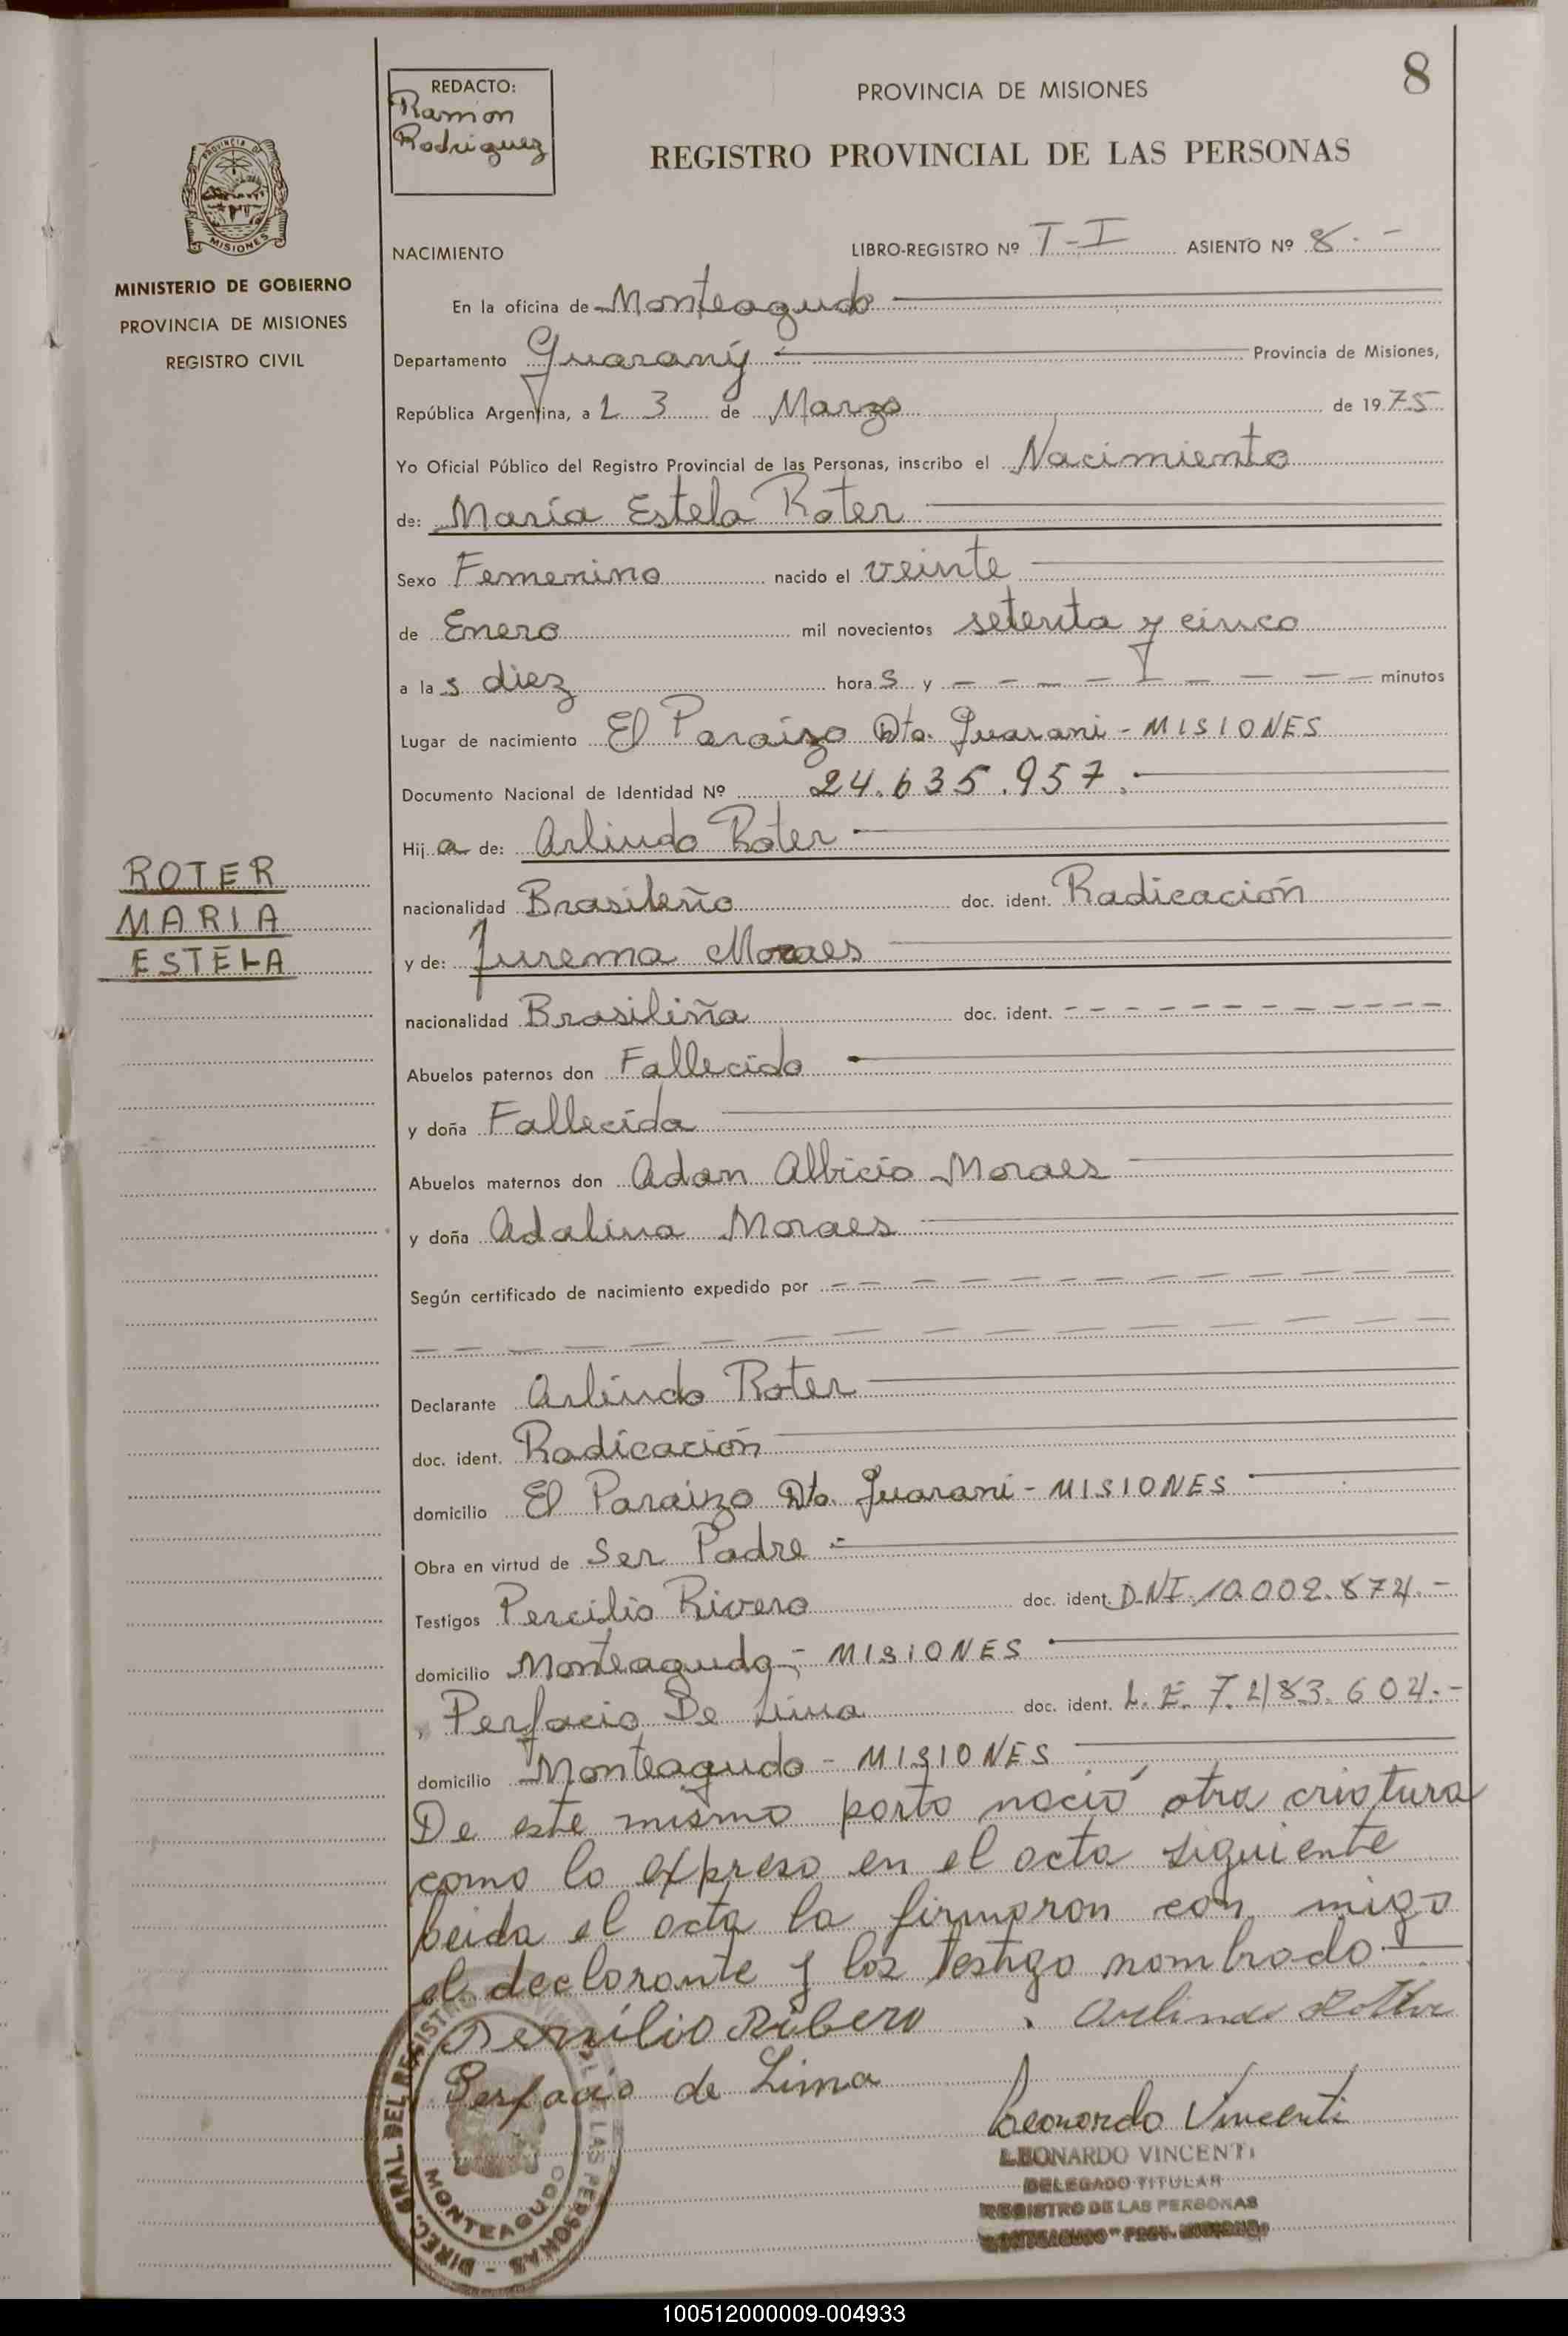 8
REDACTO:
Ramon
Rodriguez
PROVINCIA DE MISIONES
REGISTRO PROVINCIAL DE LAS PERSONAS
PROVINCIA DE
MISIONES
MINISTERIO DE GOBIERNO
PROVINCIA DE MISIONES
REGISTRO CIVIL
NACIMIENTO LIBRO-REGISTRO Nº T-I ASIENTO Nº 8.-
En la oficina de Monteagudo
Departamento Guarany Provincia de Misiones,
República Argentina, a 13 de Marzo de 1975
Yo Oficial Público del Registro Provincial de las Personas, inscribo el Nacimiento
de: María Estela Roter
Sexo Femenino nacido el veinte
de Enero mil novecientos setenta y cinco
a las diez horas y - - - - - - - - minutos
Lugar de nacimiento El Paraizo Dto. Guarani - MISIONES
Documento Nacional de Identidad Nº 24.635.957.-
Hija de: Arlindo Roter
ROTER
MARIA
ESTELA
nacionalidad Brasileño doc. ident. Radicación
y de: Jurema Moraes
nacionalidad Brasiliña doc. ident. - - - - - - - - - - -
Abuelos paternos don Fallecido
y doña Fallecida
Abuelos maternos don Adan Albicio Moraes
y doña Adalina Moraes
Según certificado de nacimiento expedido por - - - - - - - - - -
- - - - - - - - - - - - - -
Declarante Arlindo Roter
doc. ident. Radicación
domicilio El Paraizo Dto. Guarani - MISIONES
Obra en virtud de Ser Padre
Testigos Percilio Rivero doc. ident. D.N.I. 10.002.874.-
domicilio Monteagudo - MISIONES
Perfacio De Lima doc. ident. L.E. 7.483.604.-
domicilio Monteagudo - MISIONES
De este mismo parto nació otra criatura
como lo expreso en el acta siguiente
leida el acta la firmaron con migo
el declarante y los testigo nombrado
Persilio Ribero Arlindo Rotter
Perfacio de Lima
Leonardo Vincenti
LEONARDO VINCENTI
DELEGADO TITULAR
REGISTRO DE LAS PERSONAS
"MONTEAGUDO" PROV. MISIONES
DIREC. GRAL DEL REGISTRO PROVINCIAL DE LAS PERSONAS
MONTEAGUDO
100512000009-004933